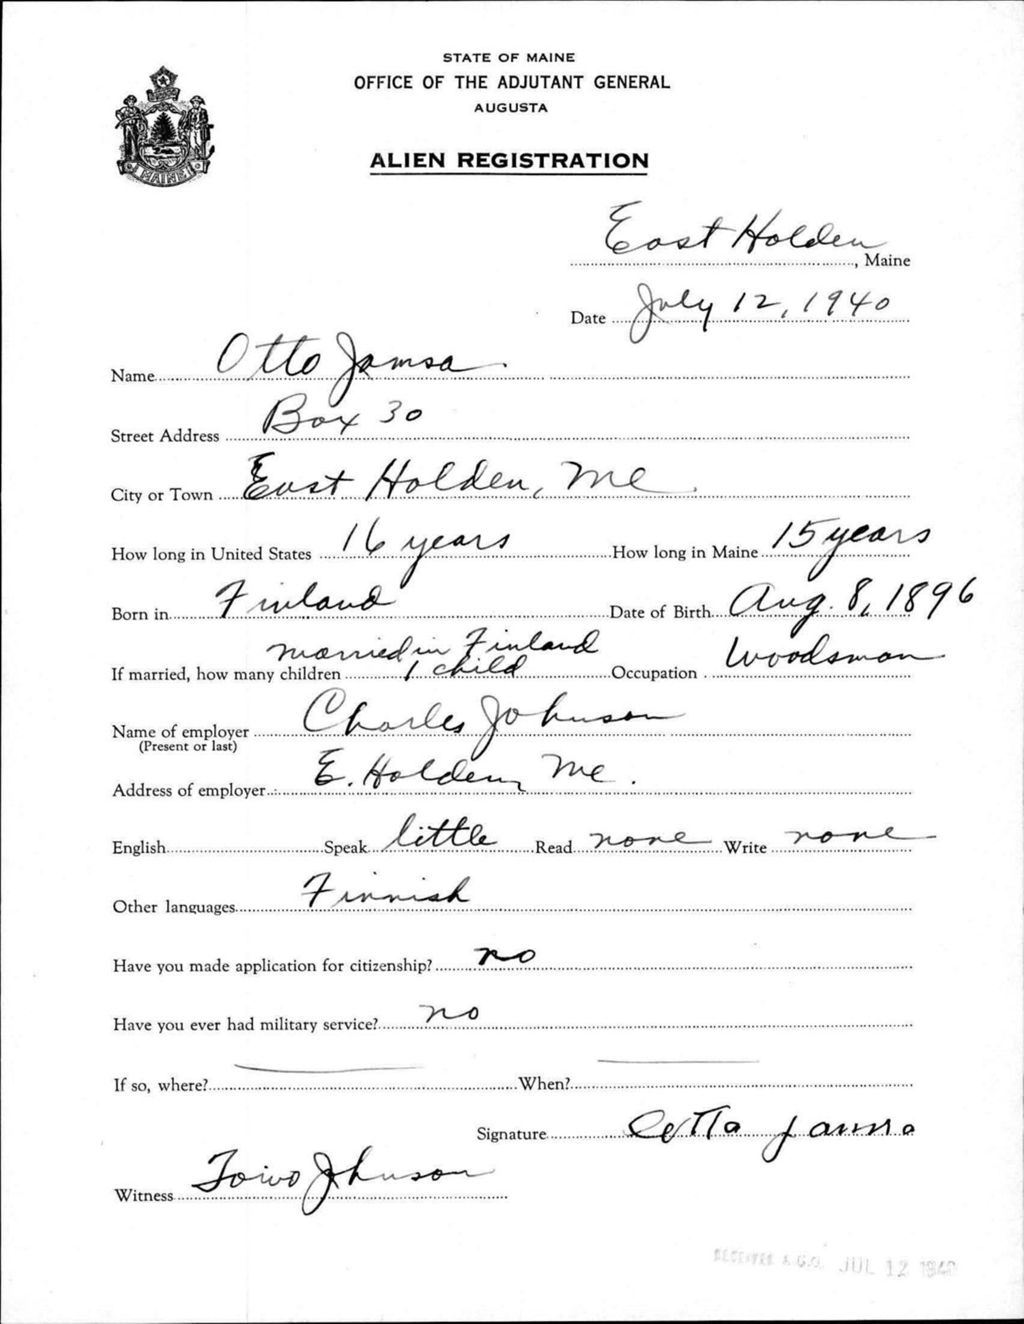 STATE OF MAINE
OFFICE OF THE ADJUTANT GENERAL
AUGUSTA
ALIEN REGISTRATION
MAINE
East Holden, Maine
Date July 12, 1940
Name Otto Jamsa
Street Address Box 30
City or Town East Holden, Me.
How long in United States 16 years How long in Maine 15 years
Born in Finland Date of Birth Aug. 8, 1896
married in Finland
If married, how many children 1 child Occupation Woodsman
Name of employer Charles Johnson
(Present or last)
Address of employer E. Holden, Me.
English Speak little Read none Write none
Other languages Finnish
Have you made application for citizenship? no
Have you ever had military service? no
If so, where? When?
Signature Otto Jamsa
Witness Toivo Johnson
RECEIVED A.G.O. JUL 12 1940